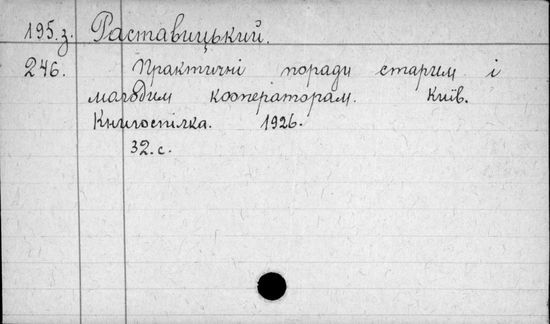 195.з. Раставицький.
246. Практичні поради старим і
молодим кооператорам. Київ.
Книгоспілка. 1926.
32.с.